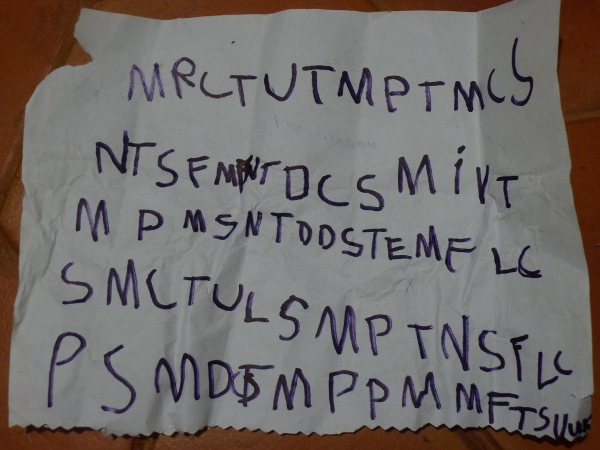 MRCTUTMPTMCS
NTSFMNTDCSMiVT
MPMSNTDDSTEMFLC
SMCTULSMPTNSFLC
PSMDSMPPMMFTS